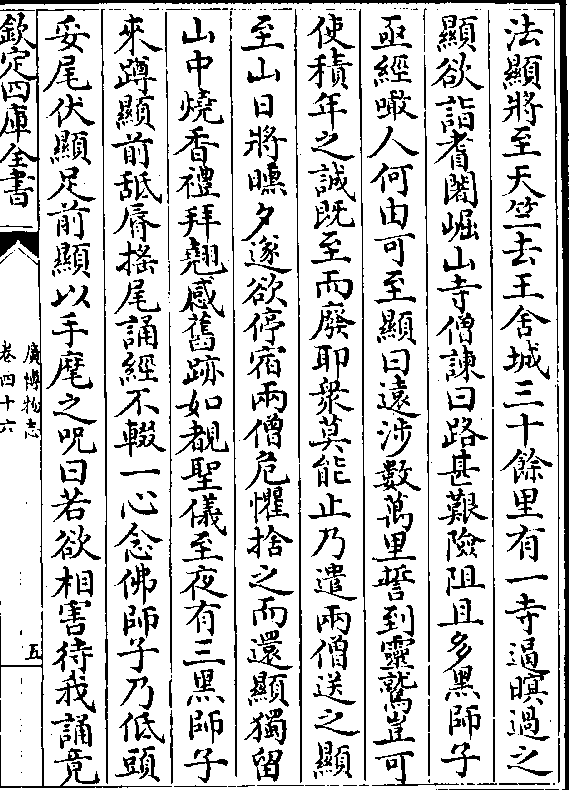 法顯將至天竺去王舍城三十餘里有一寺逼暝過之
顯欲詣耆闍崛山寺僧諫曰路甚艱險阻且多黑師子
亟經噉人何由可至顯曰遠涉數萬里誓到靈鷲豈可
使積年之誠既至而廢耶衆莫能止乃遣兩僧送之顯
至山日將曛夕遂欲停宿兩僧危懼捨之而還顯獨留
山中燒香禮拜翹感舊跡如覩聖儀至夜有三黑師子
來蹲顯前舐脣搖尾誦經不輟一心念佛師子乃低頭
妥尾伏顯足前顯以手麾之呪曰若欲相害待我誦竟
欽定四庫全書
廣博物志
卷四十六
五